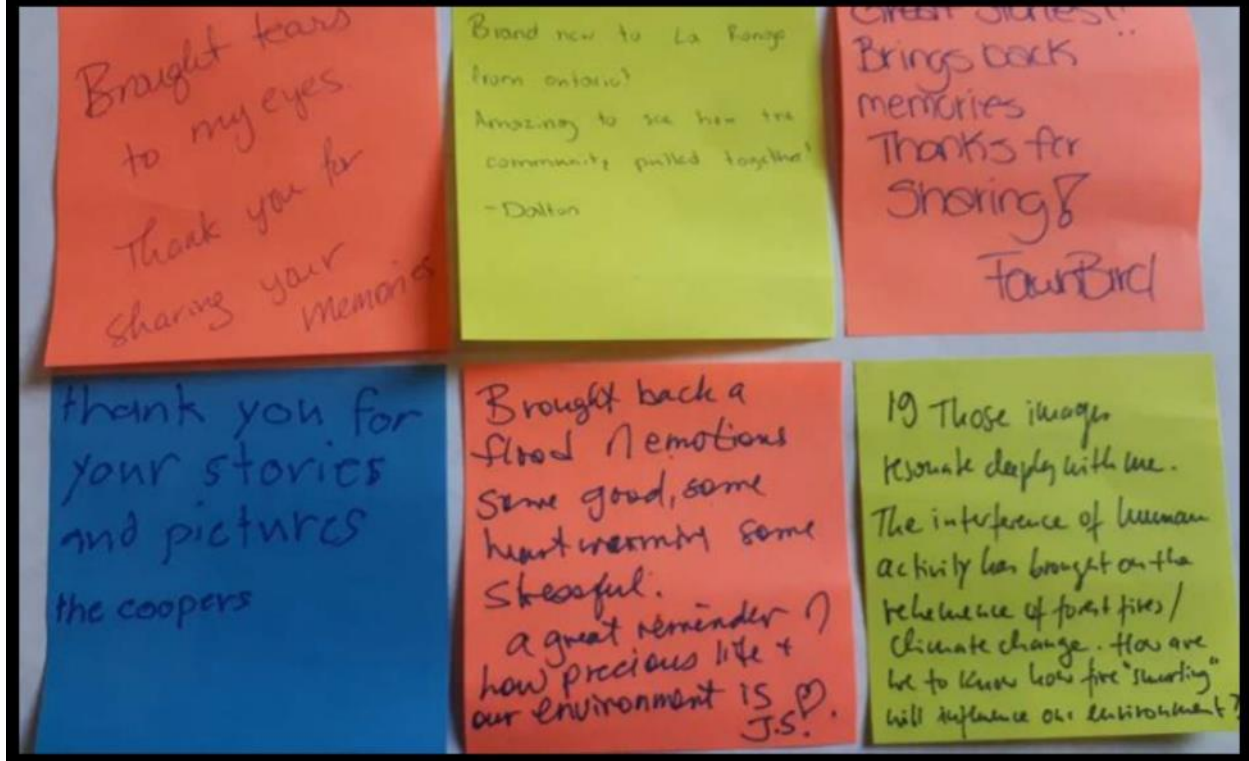 Brought tears
to my eyes.
Thank you for
sharing your
memories
Brand new to La Ronge
from ontario!
Amazing to see how the
community pulled together!
-Dalton
Great Stories!!
Brings back
memories
Thanks for
Sharing!
FawnBird
thank you for
your stories
and pictures
the coopers
Brought back a
flood of emotions
some good, some
heartwarming some
stressful.
a great reminder of
how precious life +
our environment is ♡.
J.S.
19 Those images
resonate deeply with me.
The interference of human
activity has brought on the
vehemence of forest fires/
climate change. How are
we to know how fire "smarting"
will influence our environment?